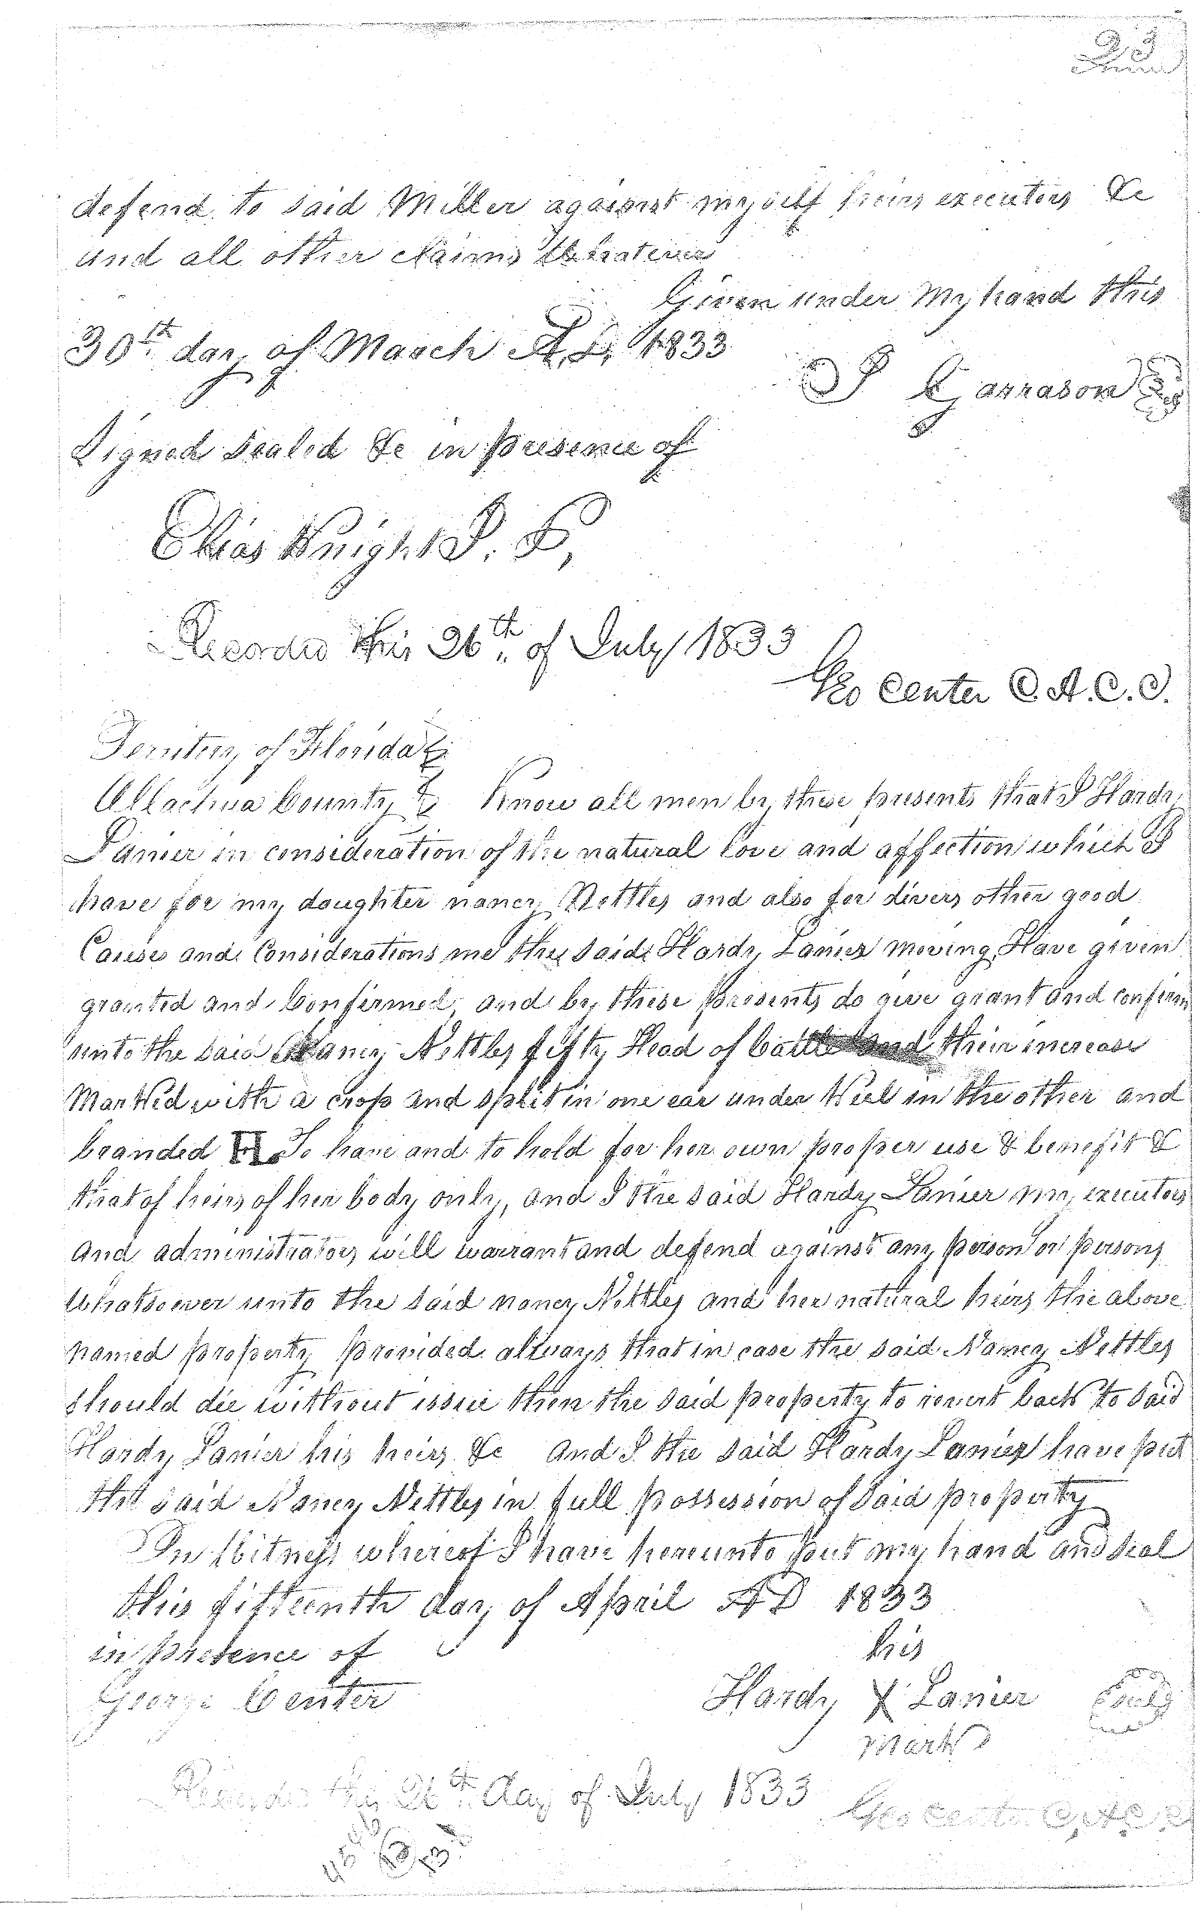 23
defend to said Miller against myself heirs executors &c
and all other claims Whatever
Given under my hand this
30th day of March A.D. 1833
Garrason
Signed sealed &c in presence of
Elias Knight J. P,
Recorded this 26th of July 1833
Geo Center C.A.C.C.
Territory of Florida
Allachua County Know all men by these presents that I Hardy
Lanier in consideration of the natural love and affection which I
have for my daughter nancy Nettles and also for divers other good
Causes and Considerations me the said Hardy Lanier moving, Have given
granted and Confirmed, and by these presents do give grant and confirm
unto the said Nancy Nettles fifty Head of Cattle and their increase
Marked with a crop and split in one ear under Keel in the other and
branded HL To have and to hold for her own proper use & benefit &
that of heirs of her body only, and I the said Hardy Lanier my executors
and administrators will warrant and defend against any person or persons
Whatsoever unto the said nancy Nettles and her natural heirs the above
named property provided always that in case the said Nancy Nettles
should die without issue then the said property to revert back to said
Hardy Lanier his heirs &c and I the said Hardy Lanier have put
the said Nancy Nettles in full possession of said property
In Witness whereof I have hereunto put my hand and seal
this fifteenth day of April AD 1833
in presence of his
George Center Hardy X Lanier Seal
mark
Recorded this 26th day of July 1833 Geo Center C,A,C,C